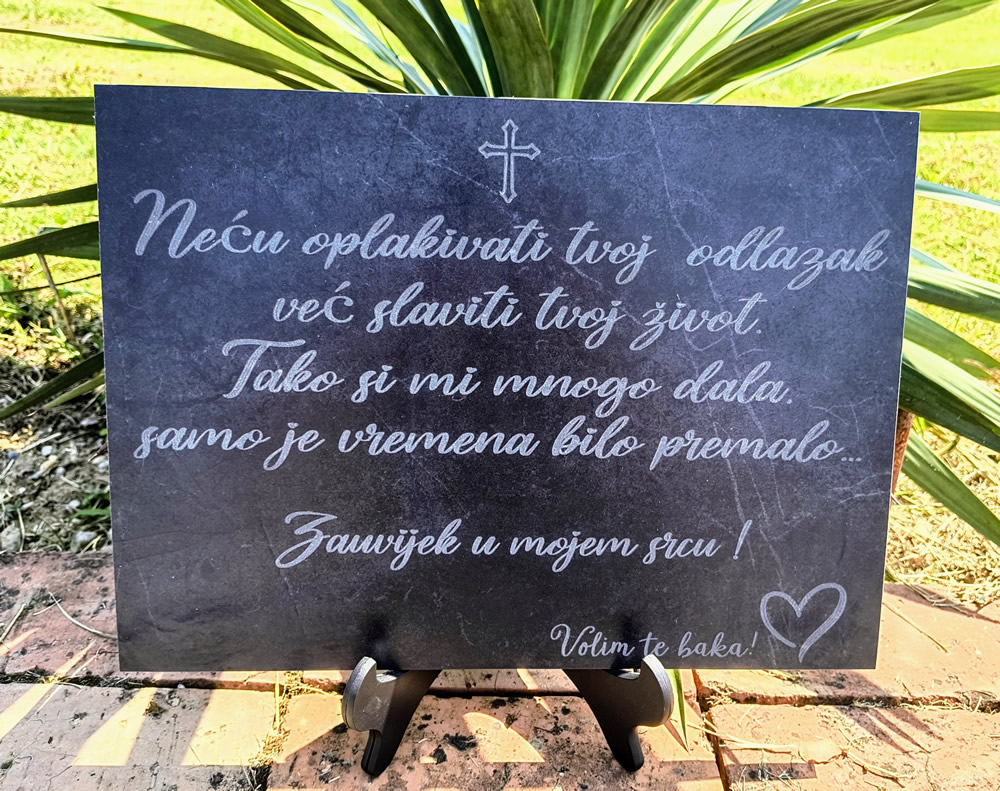 Neću oplakivati tvoj odlazak
već slaviti tvoj život.
Tako si mi mnogo dala,
samo je vremena bilo premalo...
Zauvijek u mojem srcu !
Volim te baka!